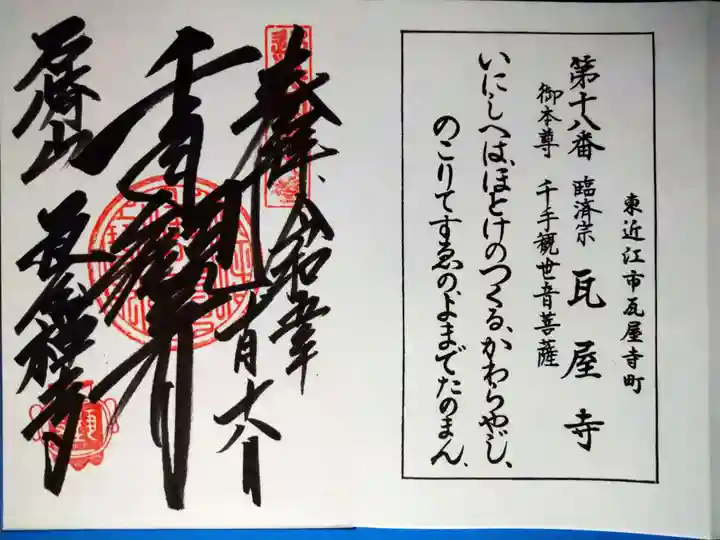 東近江市瓦屋寺町
第十八番 臨済宗 瓦屋寺
御本尊 千手観世音菩薩
いにしへは、ほとけのつくる、かわらやじ、
のこりてすゑの、よまでたのまん、
奉拝、令和五年
十月十六日
千手観音
石崎山 瓦屋禅寺